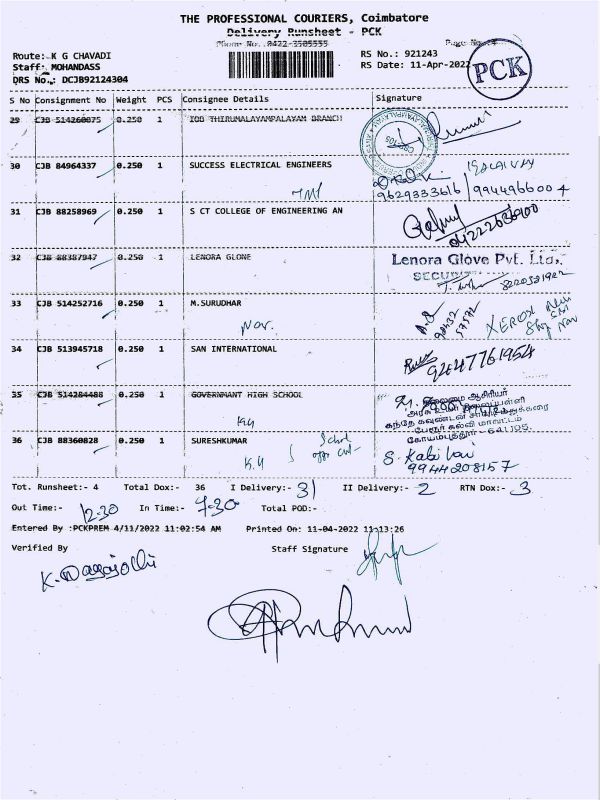 THE PROFESSIONAL COURIERS, Coimbatore
Delivery Runsheet - PCK
Phone No. 0422-3505555 Page No:4
Route: K G CHAVADI RS No.: 921243
Staff: MOHANDASS RS Date: 11-Apr-2022
DRS No.: DCJB92124304
PCK
S No Consignment No Weight PCS Consignee Details Signature
29 CJB 514260875 0.250 1 IOB THIRUMALAYAMPALAYAM BRANCH
30 CJB 84964337 0.250 1 SUCCESS ELECTRICAL ENGINEERS
9629333616 / 9944966004
31 CJB 88258969 0.250 1 S CT COLLEGE OF ENGINEERING AN
04222636900
32 CJB 88387947 0.250 1 LENORA GLONE Lenora Glove Pvt. Ltd.,
SECURITY
33 CJB 514252716 0.250 1 M.SURUDHAR
Nav. XEROX
34 CJB 513945718 0.250 1 SAN INTERNATIONAL
9244776 1954
35 CJB 514284488 0.250 1 GOVERNMANT HIGH SCHOOL
தலைமை ஆசிரியர்
K.G
கோயம்புத்தூர் - 641 105.
36 CJB 88360828 0.250 1 SURESHKUMAR
K.G S. Kalai
9944208157
Tot. Runsheet:- 4 Total Dox:- 36 I Delivery:- 31 II Delivery:- 2 RTN Dox:- 3
Out Time:- 12:30 In Time:- 7:30 Total POD:-
Entered By :PCKPREM 4/11/2022 11:02:54 AM Printed On: 11-04-2022 11:13:26
Verified By Staff Signature